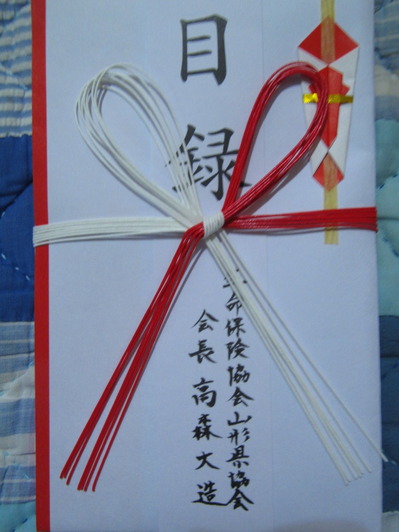 目録
命保険協会山形県協会
会長 高森大造